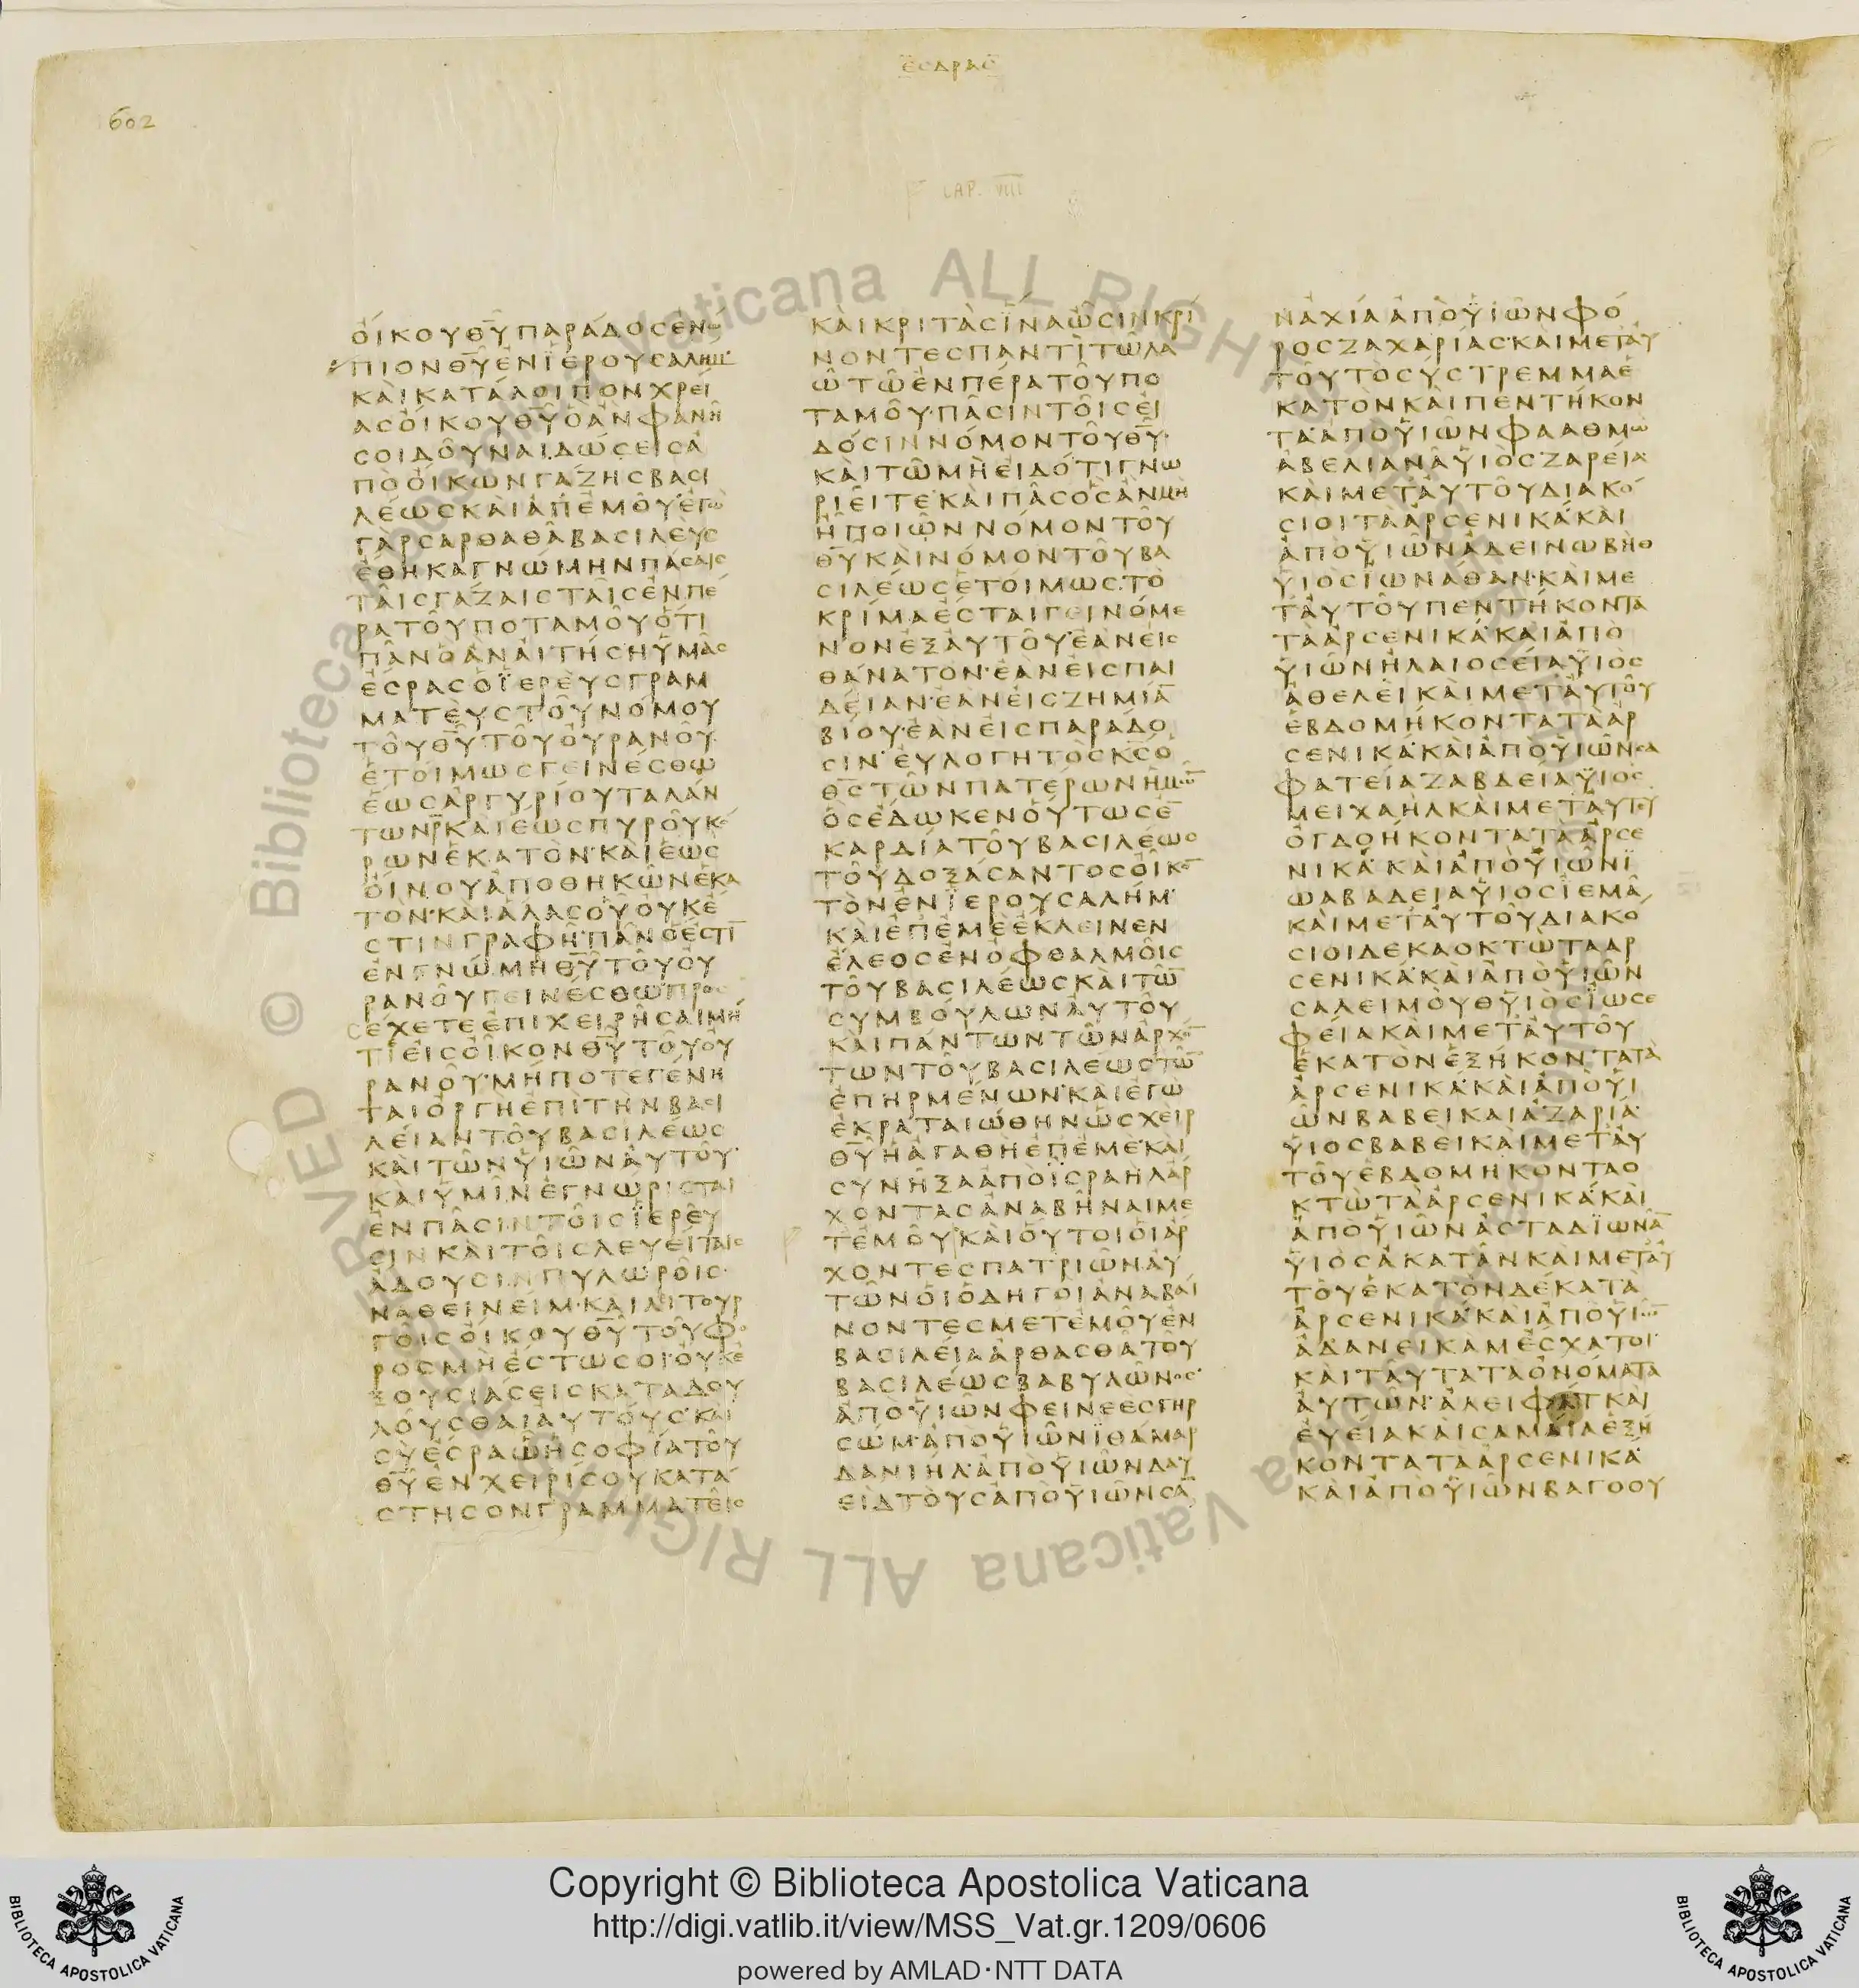 ΕΣΔΡΑΣ
602
CAP. VIII
ΟΙΚΟΥΘΥΠΑΡΑΔΟΣΕΝΩ
ΠΙΟΝΘΥΕΝΙΕΡΟΥΣΑΛΗΜ
ΚΑΙΚΑΤΑΛΟΙΠΟΝΧΡΕΙ
ΑΣΟΙΚΟΥΘΥΟΑΝΦΑΝΗ
ΣΟΙΔΟΥΝΑΙΔΩΣΕΙΣΑ
ΠΟΟΙΚΩΝΓΑΖΗΣΒΑΣΙ
ΛΕΩΣΚΑΙΑΠΕΜΟΥΕΓΩ
ΓΑΡΣΑΡΘΑΘΑΒΑΣΙΛΕΥΣ
ΕΘΗΚΑΓΝΩΜΗΝΠΑΣΑΙΣ
ΤΑΙΣΓΑΖΑΙΣΤΑΙΣΕΝΠΕ
ΡΑΤΟΥΠΟΤΑΜΟΥΟΤΙ
ΠΑΝΟΑΝΑΙΤΗΣΗΥΜΑΣ
ΕΣΡΑΣΟΪΕΡΕΥΣΓΡΑΜ
ΜΑΤΕΥΣΤΟΥΝΟΜΟΥ
ΤΟΥΘΥΤΟΥΟΥΡΑΝΟΥ
ΕΤΟΙΜΩΣΓΕΙΝΕΣΘΩ
ΕΩΣΑΡΓΥΡΙΟΥΤΑΛΑΝ
ΤΩΝΡΚΑΙΕΩΣΠΥΡΟΥΚΟ
ΡΩΝΕΚΑΤΟΝΚΑΙΕΩΣ
ΟΙΝΟΥΑΠΟΘΗΚΩΝΕΚΑ
ΤΟΝΚΑΙΑΛΑΣΟΥΟΥΚΕ
ΣΤΙΝΓΡΑΦΗΠΑΝΟΕΣΤΙ
ΕΝΓΝΩΜΗΘΥΤΟΥΟΥ
ΡΑΝΟΥΓΕΙΝΕΣΘΩΠΡΟΣ
ΕΧΕΤΕΕΠΙΧΕΙΡΗΣΑΙΜΗ
ΤΙΕΙΣΟΙΚΟΝΘΥΤΟΥΟΥ
ΡΑΝΟΥΜΗΠΟΤΕΓΕΝΗ
ΤΑΙΟΡΓΗΕΠΙΤΗΝΒΑΣΙ
ΛΕΙΑΝΤΟΥΒΑΣΙΛΕΩΣ
ΚΑΙΤΩΝΫΙΩΝΑΥΤΟΥ
ΚΑΙΫΜΙΝΕΓΝΩΡΙΣΤΑΙ
ΕΝΠΑΣΙΝΤΟΙΣΪΕΡΕΥ
ΣΙΝΚΑΙΤΟΙΣΛΕΥΕΙΤΑΙΣ
ΑΔΟΥΣΙΝΠΥΛΩΡΟΙΣ
ΝΑΘΕΙΝΕΙΜΚΑΙΛΙΤΟΥΡ
ΓΟΙΣΟΙΚΟΥΘΥΤΟΥΦΟ
ΡΟΣΜΗΕΣΤΩΣΟΙΟΥΚΕ
ΞΟΥΣΙΑΣΕΙΣΚΑΤΑΔΟΥ
ΛΟΥΣΘΑΙΑΥΤΟΥΣΚΑΙ
ΣΥΕΣΡΑΩΗΣΟΦΙΑΤΟΥ
ΘΥΕΝΧΕΙΡΙΣΟΥΚΑΤΑ
ΣΤΗΣΟΝΓΡΑΜΜΑΤΕΙΣ
ΚΑΙΚΡΙΤΑΣΪΝΑΩΣΙΝΚΡΙ
ΝΟΝΤΕΣΠΑΝΤΙΤΩΛΑ
ΩΤΩΕΝΠΕΡΑΤΟΥΠΟ
ΤΑΜΟΥΠΑΣΙΝΤΟΙΣΕΙ
ΔΟΣΙΝΝΟΜΟΝΤΟΥΘΥ
ΚΑΙΤΩΜΗΕΙΔΟΤΙΓΝΩ
ΡΙΕΙΤΕΚΑΙΠΑΣΟΣΑΝΜΗ
ΗΠΟΙΩΝΝΟΜΟΝΤΟΥ
ΘΥΚΑΙΝΟΜΟΝΤΟΥΒΑ
ΣΙΛΕΩΣΕΤΟΙΜΩΣΤΟ
ΚΡΙΜΑΕΣΤΑΙΓΕΙΝΟΜΕ
ΝΟΝΕΞΑΥΤΟΥΕΑΝΕΙΣ
ΘΑΝΑΤΟΝΕΑΝΕΙΣΠΑΙ
ΔΕΙΑΝΕΑΝΕΙΣΖΗΜΙΑ
ΒΙΟΥΕΑΝΕΙΣΠΑΡΑΔΟ
ΣΙΝΕΥΛΟΓΗΤΟΣΚΣΟ
ΘΣΤΩΝΠΑΤΕΡΩΝΗΜΩ
ΟΣΕΔΩΚΕΝΟΥΤΩΣΕ
ΚΑΡΔΙΑΤΟΥΒΑΣΙΛΕΩΣ
ΤΟΥΔΟΞΑΣΑΝΤΟΣΟΙΚΟ
ΤΟΝΕΝΪΕΡΟΥΣΑΛΗΜ
ΚΑΙΕΠΕΜΕΕΚΛΕΙΝΕΝ
ΕΛΕΟΣΕΝΟΦΘΑΛΜΟΙΣ
ΤΟΥΒΑΣΙΛΕΩΣΚΑΙΤΩ
ΣΥΜΒΟΥΛΩΝΑΥΤΟΥ
ΚΑΙΠΑΝΤΩΝΤΩΝΑΡΧΟ
ΤΩΝΤΟΥΒΑΣΙΛΕΩΣΤΩ
ΕΠΗΡΜΕΝΩΝΚΑΙΕΓΩ
ΕΚΡΑΤΑΙΩΘΗΝΩΣΧΕΙΡ
ΘΥΗΑΓΑΘΗΕΠΕΜΕΚΑΙ
ΣΥΝΗΞΑΑΠΟΪΣΡΑΗΛΑΡ
ΧΟΝΤΑΣΑΝΑΒΗΝΑΙΜΕ
ΤΕΜΟΥΚΑΙΟΥΤΟΙΟΙΑΡ
ΧΟΝΤΕΣΠΑΤΡΙΩΝΑΥ
ΤΩΝΟΙΟΔΗΓΟΙΑΝΑΒΑΙ
ΝΟΝΤΕΣΜΕΤΕΜΟΥΕΝ
ΒΑΣΙΛΕΙΑΑΡΘΑΣΘΑΤΟΥ
ΒΑΣΙΛΕΩΣΒΑΒΥΛΩΝΟΣ
ΑΠΟΫΙΩΝΦΕΙΝΕΕΣΓΗΡ
ΣΩΜΑΠΟΫΙΩΝΪΘΑΜΑΡ
ΔΑΝΙΗΛΑΠΟΫΙΩΝΔΑΥ
ΕΙΔΤΟΥΣΑΠΟΫΙΩΝΣΑ
ΝΑΧΙΑΑΠΟΫΙΩΝΦΟ
ΡΟΣΖΑΧΑΡΙΑΣΚΑΙΜΕΤΑΥ
ΤΟΥΤΟΣΥΣΤΡΕΜΜΑΕ
ΚΑΤΟΝΚΑΙΠΕΝΤΗΚΟΝ
ΤΑΑΠΟΫΙΩΝΦΑΑΘΜΩ
ΑΒΕΛΙΑΝΑΫΙΟΣΖΑΡΕΙΑ
ΚΑΙΜΕΤΑΥΤΟΥΔΙΑΚΟ
ΣΙΟΙΤΑΑΡΣΕΝΙΚΑΚΑΙ
ΑΠΟΫΙΩΝΑΔΕΙΝΩΒΗΘ
ΫΙΟΣΪΩΝΑΘΑΝΚΑΙΜΕ
ΤΑΥΤΟΥΠΕΝΤΗΚΟΝΤΑ
ΤΑΑΡΣΕΝΙΚΑΚΑΙΑΠΟ
ΫΙΩΝΗΛΑΙΟΣΕΙΑΫΙΟΣ
ΑΘΕΛΕΙΚΑΙΜΕΤΑΥΤΟΥ
ΕΒΔΟΜΗΚΟΝΤΑΤΑΑΡ
ΣΕΝΙΚΑΚΑΙΑΠΟΫΙΩΝΣΑ
ΦΑΤΕΙΑΖΑΒΔΕΙΑΫΙΟΣ
ΜΕΙΧΑΗΛΚΑΙΜΕΤΑΥΤΟΥ
ΟΓΔΟΗΚΟΝΤΑΤΑΑΡΣΕ
ΝΙΚΑΚΑΙΑΠΟΫΙΩΝΪ
ΩΑΒΑΔΕΙΑΫΙΟΣΪΕΜΑ
ΚΑΙΜΕΤΑΥΤΟΥΔΙΑΚΟ
ΣΙΟΙΔΕΚΑΟΚΤΩΤΑΑΡ
ΣΕΝΙΚΑΚΑΙΑΠΟΫΙΩΝ
ΣΑΛΕΙΜΟΥΘΫΙΟΣΪΩΣΕ
ΦΕΙΑΚΑΙΜΕΤΑΥΤΟΥ
ΕΚΑΤΟΝΕΞΗΚΟΝΤΑΤΑ
ΑΡΣΕΝΙΚΑΚΑΙΑΠΟΫΙ
ΩΝΒΑΒΕΙΚΑΙΑΖΑΡΙΑ
ΫΙΟΣΒΑΒΕΙΚΑΙΜΕΤΑΥ
ΤΟΥΕΒΔΟΜΗΚΟΝΤΑΟ
ΚΤΩΤΑΑΡΣΕΝΙΚΑΚΑΙ
ΑΠΟΫΙΩΝΑΣΤΑΔΪΩΝΑ
ΫΙΟΣΑΚΑΤΑΝΚΑΙΜΕΤΑΥ
ΤΟΥΕΚΑΤΟΝΔΕΚΑΤΑ
ΑΡΣΕΝΙΚΑΚΑΙΑΠΟΫΙΩ
ΑΔΑΝΕΙΚΑΜΕΣΧΑΤΟΙ
ΚΑΙΤΑΥΤΑΤΑΟΝΟΜΑΤΑ
ΑΥΤΩΝΑΛΕΙΦΑΤΚΑΙ
ΕΥΕΙΑΚΑΙΣΑΜΑΙΑΕΞΗ
ΚΟΝΤΑΤΑΑΡΣΕΝΙΚΑ
ΚΑΙΑΠΟΫΙΩΝΒΑΓΟΟΥ
Copyright © Biblioteca Apostolica Vaticana
http://digi.vatlib.it/view/MSS_Vat.gr.1209/0606
powered by AMLAD·NTT DATA
BIBLIOTECA APOSTOLICA VATICANA
BIBLIOTECA APOSTOLICA VATICANA